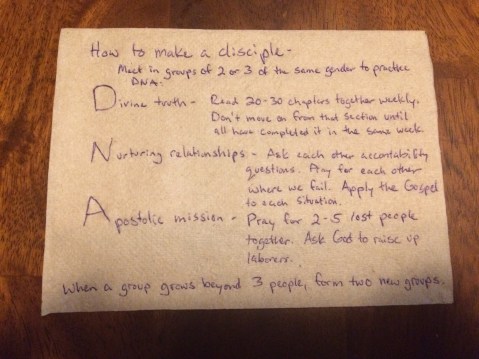 How to make a disciple -
Meet in groups of 2 or 3 of the same gender to practice
DNA.
Divine truth - Read 20-30 chapters together weekly.
Don't move on from that section until
all have completed it in the same week.
Nurturing relationships - Ask each other accountability
questions. Pray for each other
where we fail. Apply the Gospel
to each situation.
Apostolic mission - Pray for 2-5 lost people
together. Ask God to raise up
laborers.
When a group grows beyond 3 people, form two new groups.